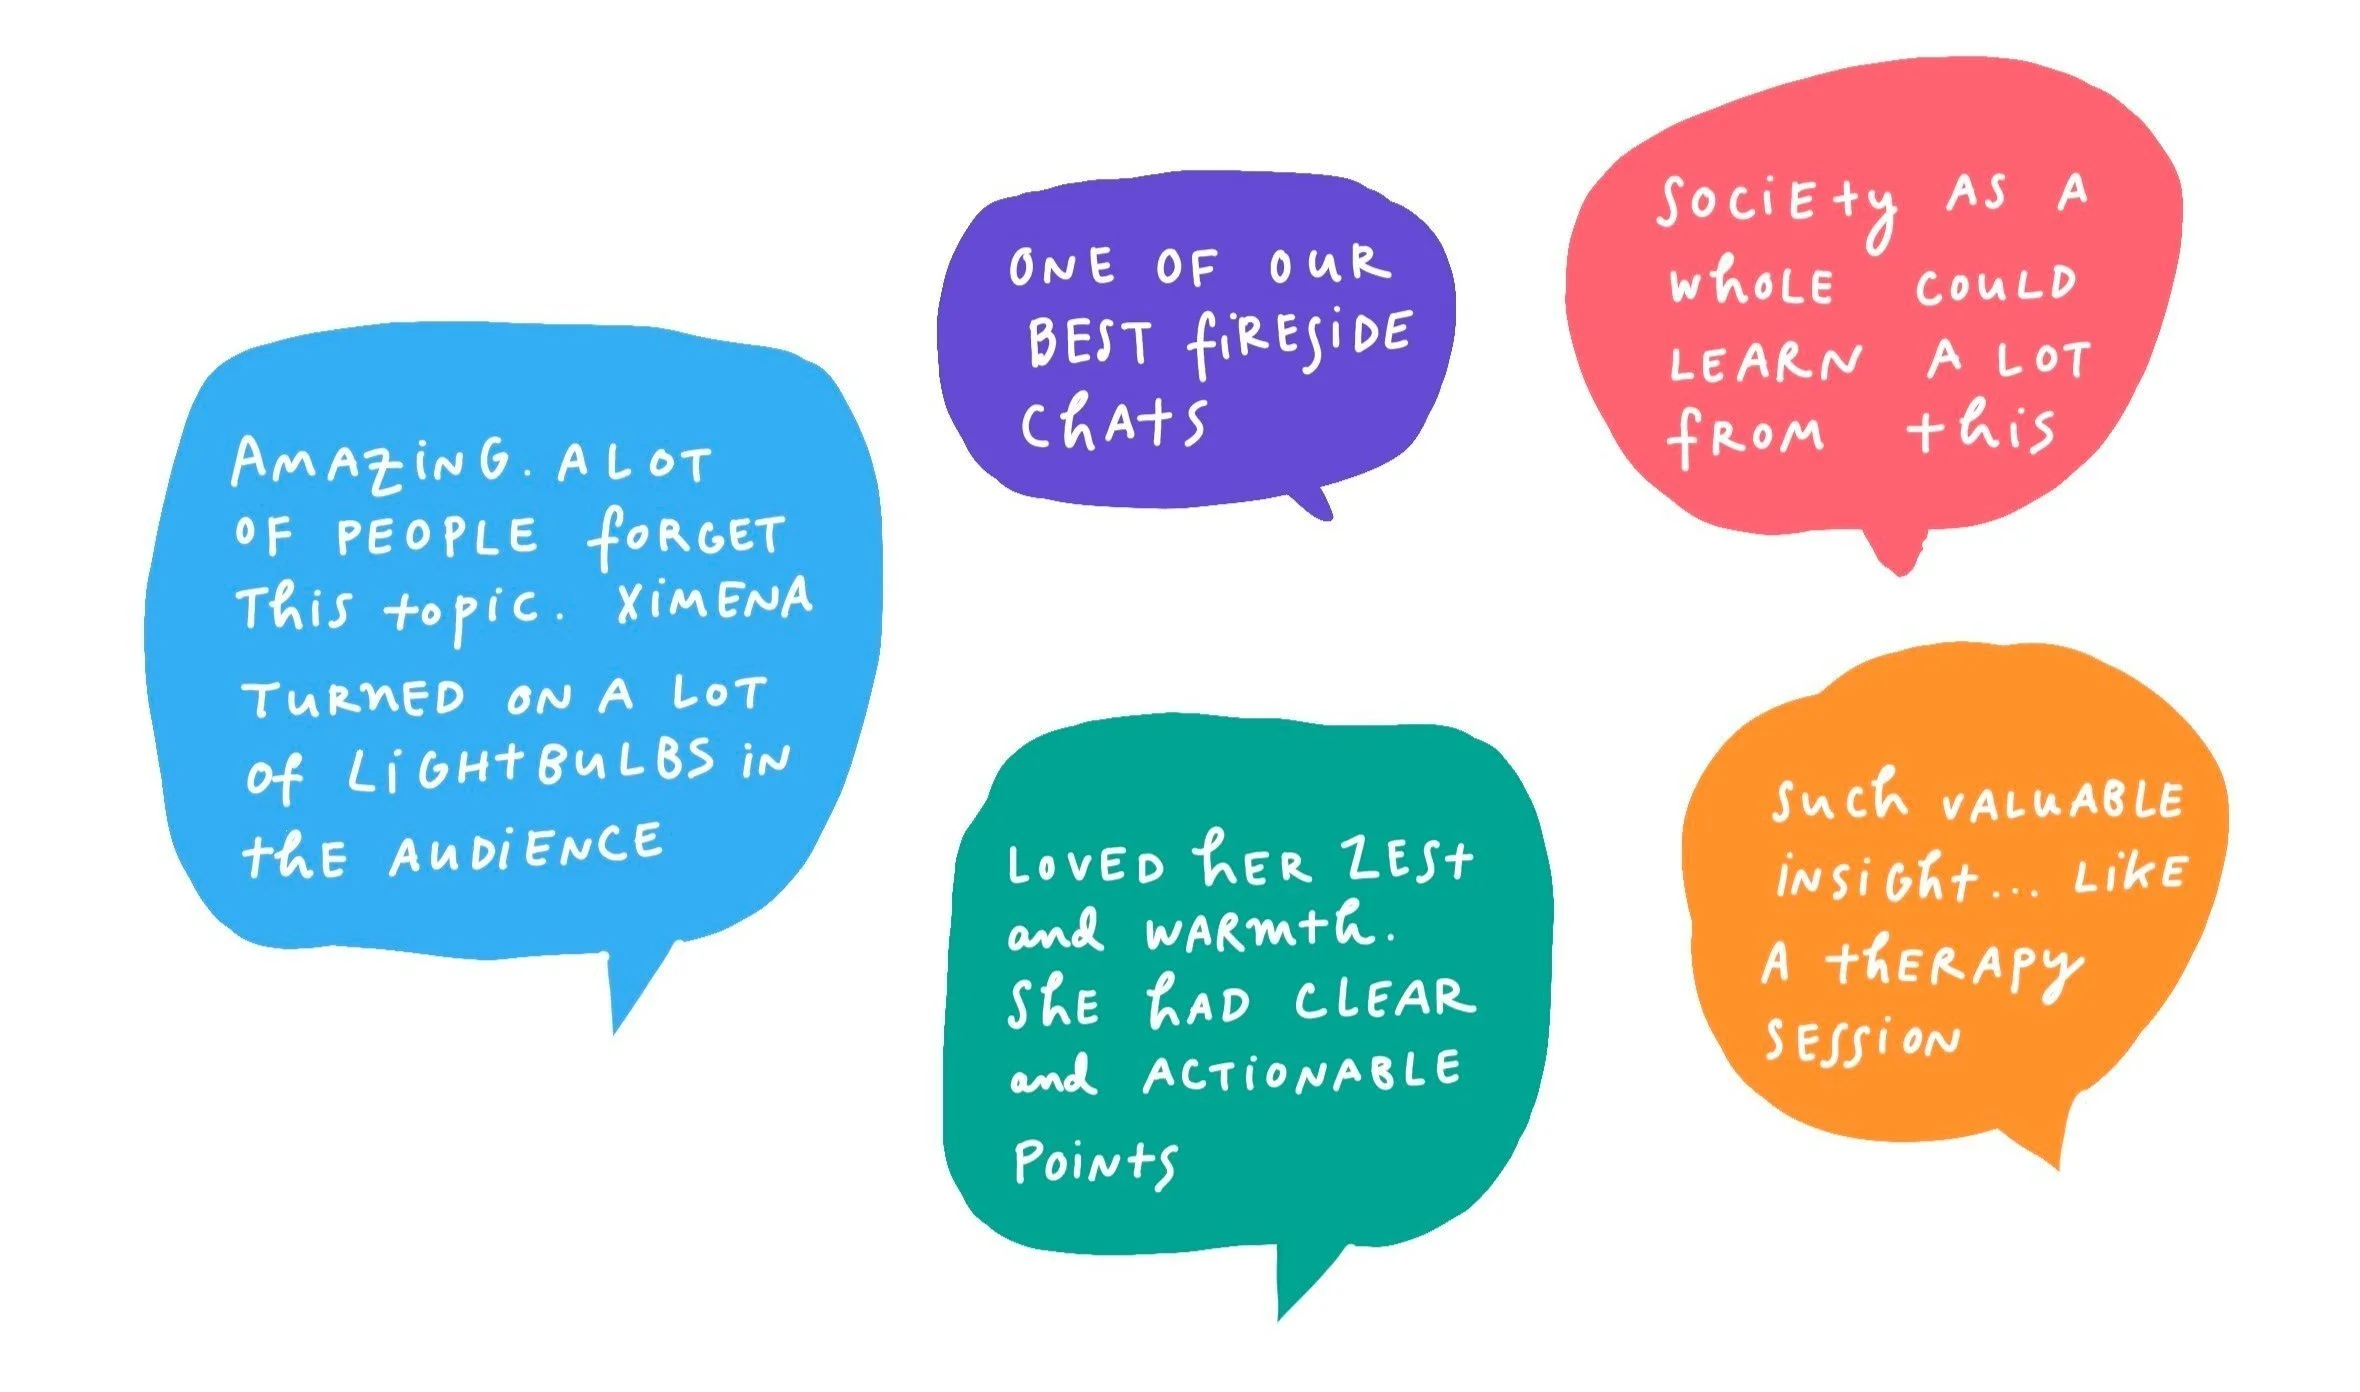 Amazing. A lot
of people forget
this topic. Ximena
turned on a lot
of lightbulbs in
the audience
One of our
best fireside
chats
Society as a
whole could
learn a lot
from this
Loved her zest
and warmth.
She had clear
and actionable
points
Such valuable
insight... like
a therapy
session